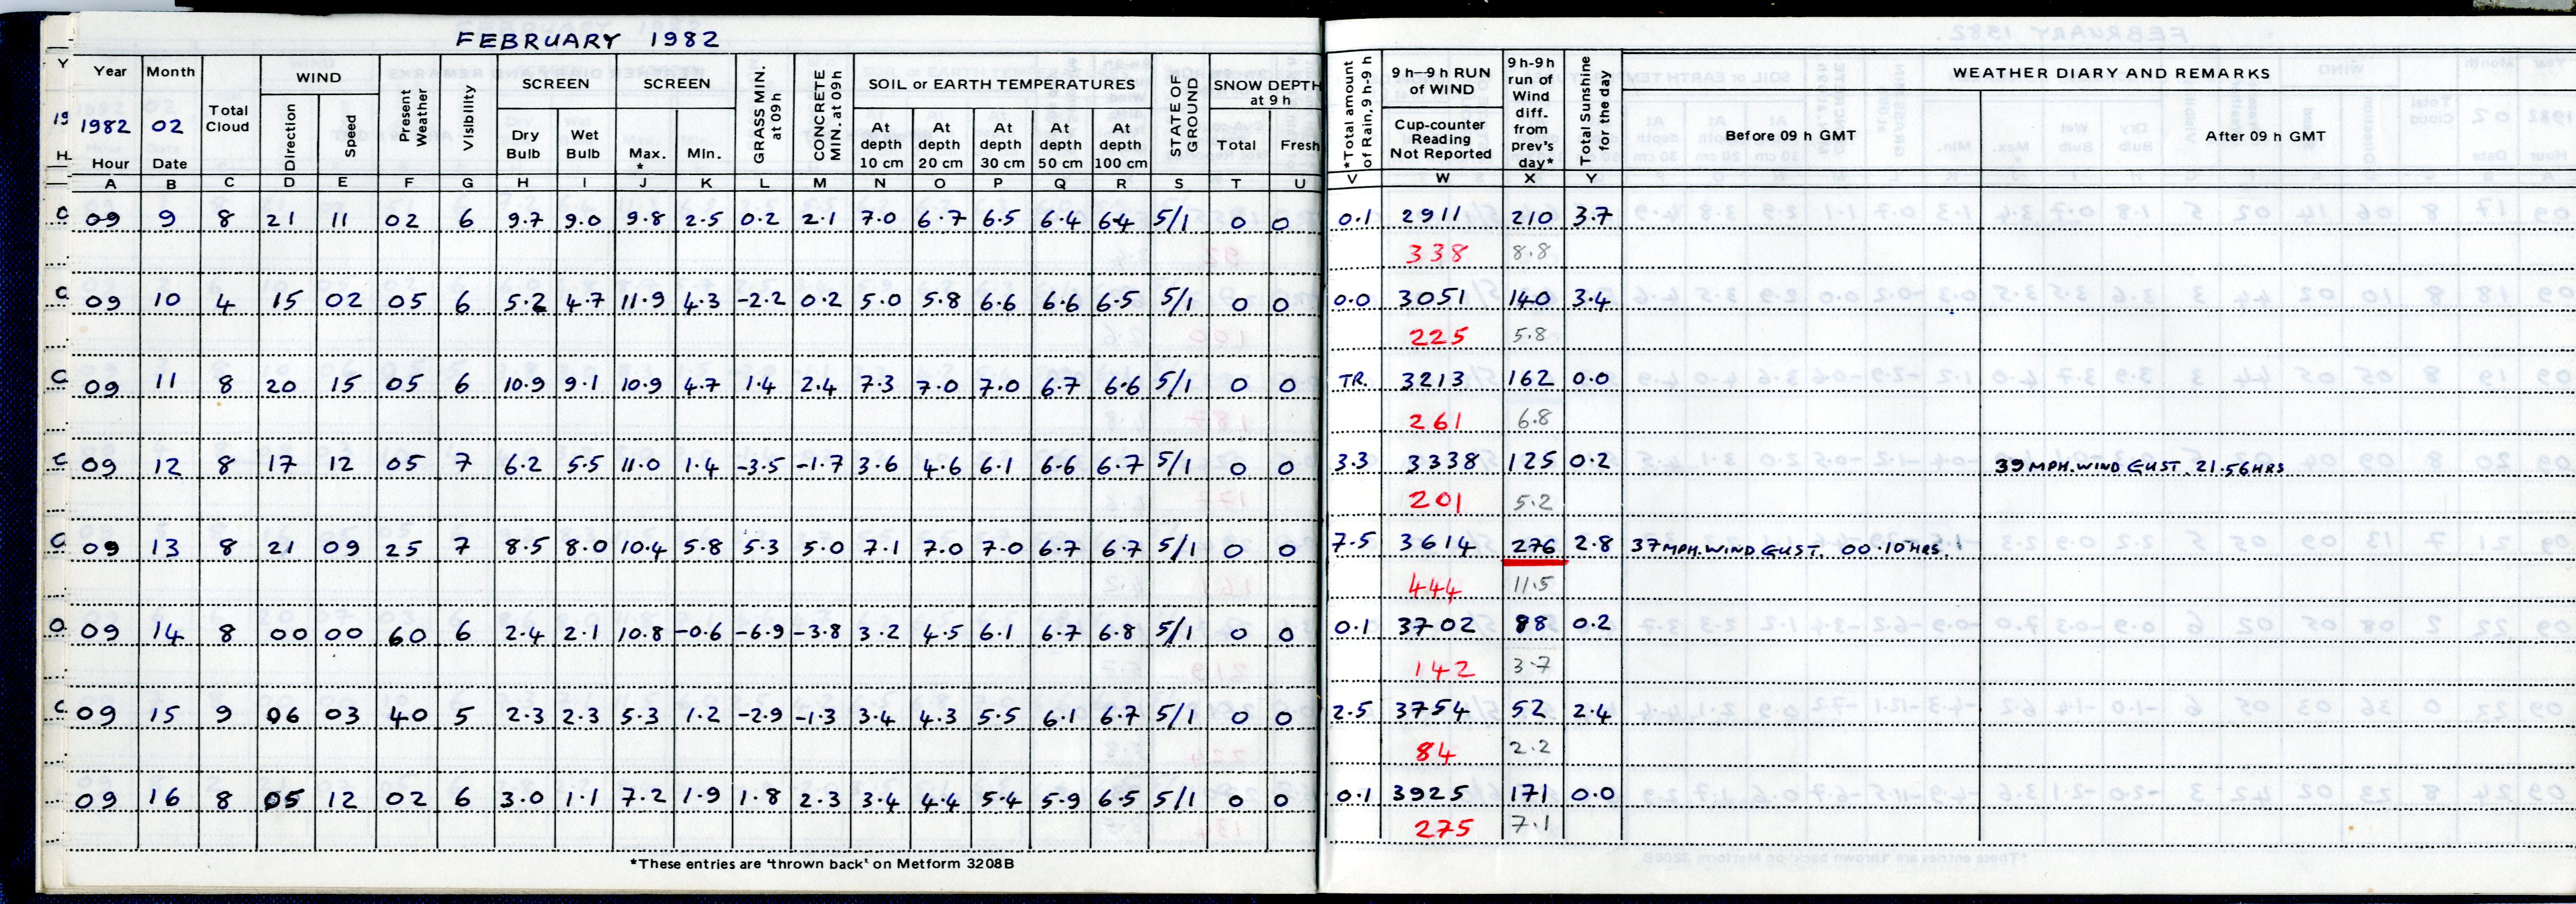 FEBRUARY 1982
Year Month Total Cloud WIND Present Weather Visibility SCREEN SCREEN GRASS MIN. at 09h CONCRETE MIN. at 09h SOIL or EARTH TEMPERATURES STATE OF GROUND SNOW DEPTH at 9 h *Total amount of Rain, 9h-9h 9h-9h RUN of WIND 9h-9h run of Wind diff. from prev's day* Total Sunshine for the day WEATHER DIARY AND REMARKS
1982 02 Direction Speed Dry Bulb Wet Bulb Max. * Min. At depth 10 cm At depth 20 cm At depth 30 cm At depth 50 cm At depth 100 cm Total Fresh Cup-counter Reading Not Reported Before 09 h GMT After 09 h GMT
Hour Date
A B C D E F G H I J K L M N O P Q R S T U V W X Y
C 09 9 8 21 11 02 6 9.7 9.0 9.8 2.5 0.2 2.1 7.0 6.7 6.5 6.4 6.4 5/1 0 0 0.1 2911 210 3.7
338 8.8
C 09 10 4 15 02 05 6 5.2 4.7 11.9 4.3 -2.2 0.2 5.0 5.8 6.6 6.6 6.5 5/1 0 0 0.0 3051 140 3.4
225 5.8
C 09 11 8 20 15 05 6 10.9 9.1 10.9 4.7 1.4 2.4 7.3 7.0 7.0 6.7 6.6 5/1 0 0 TR. 3213 162 0.0
261 6.8
C 09 12 8 17 12 05 7 6.2 5.5 11.0 1.4 -3.5 -1.7 3.6 4.6 6.1 6.6 6.7 5/1 0 0 3.3 3338 125 0.2 39 MPH. WIND GUST. 21.56 HRS
201 5.2
C 09 13 8 21 09 25 7 8.5 8.0 10.4 5.8 5.3 5.0 7.1 7.0 7.0 6.7 6.7 5/1 0 0 7.5 3614 276 2.8 37 MPH. WIND GUST. 00.10 HRS.
444 11.5
O. 09 14 8 00 00 60 6 2.4 2.1 10.8 -0.6 -6.9 -3.8 3.2 4.5 6.1 6.7 6.8 5/1 0 0 0.1 3702 88 0.2
142 3.7
C. 09 15 9 06 03 40 5 2.3 2.3 5.3 1.2 -2.9 -1.3 3.4 4.3 5.5 6.1 6.7 5/1 0 0 2.5 3754 52 2.4
84 2.2
09 16 8 05 12 02 6 3.0 1.1 7.2 1.9 1.8 2.3 3.4 4.4 5.4 5.9 6.5 5/1 0 0 0.1 3925 171 0.0
275 7.1
*These entries are 'thrown back' on Metform 3208B